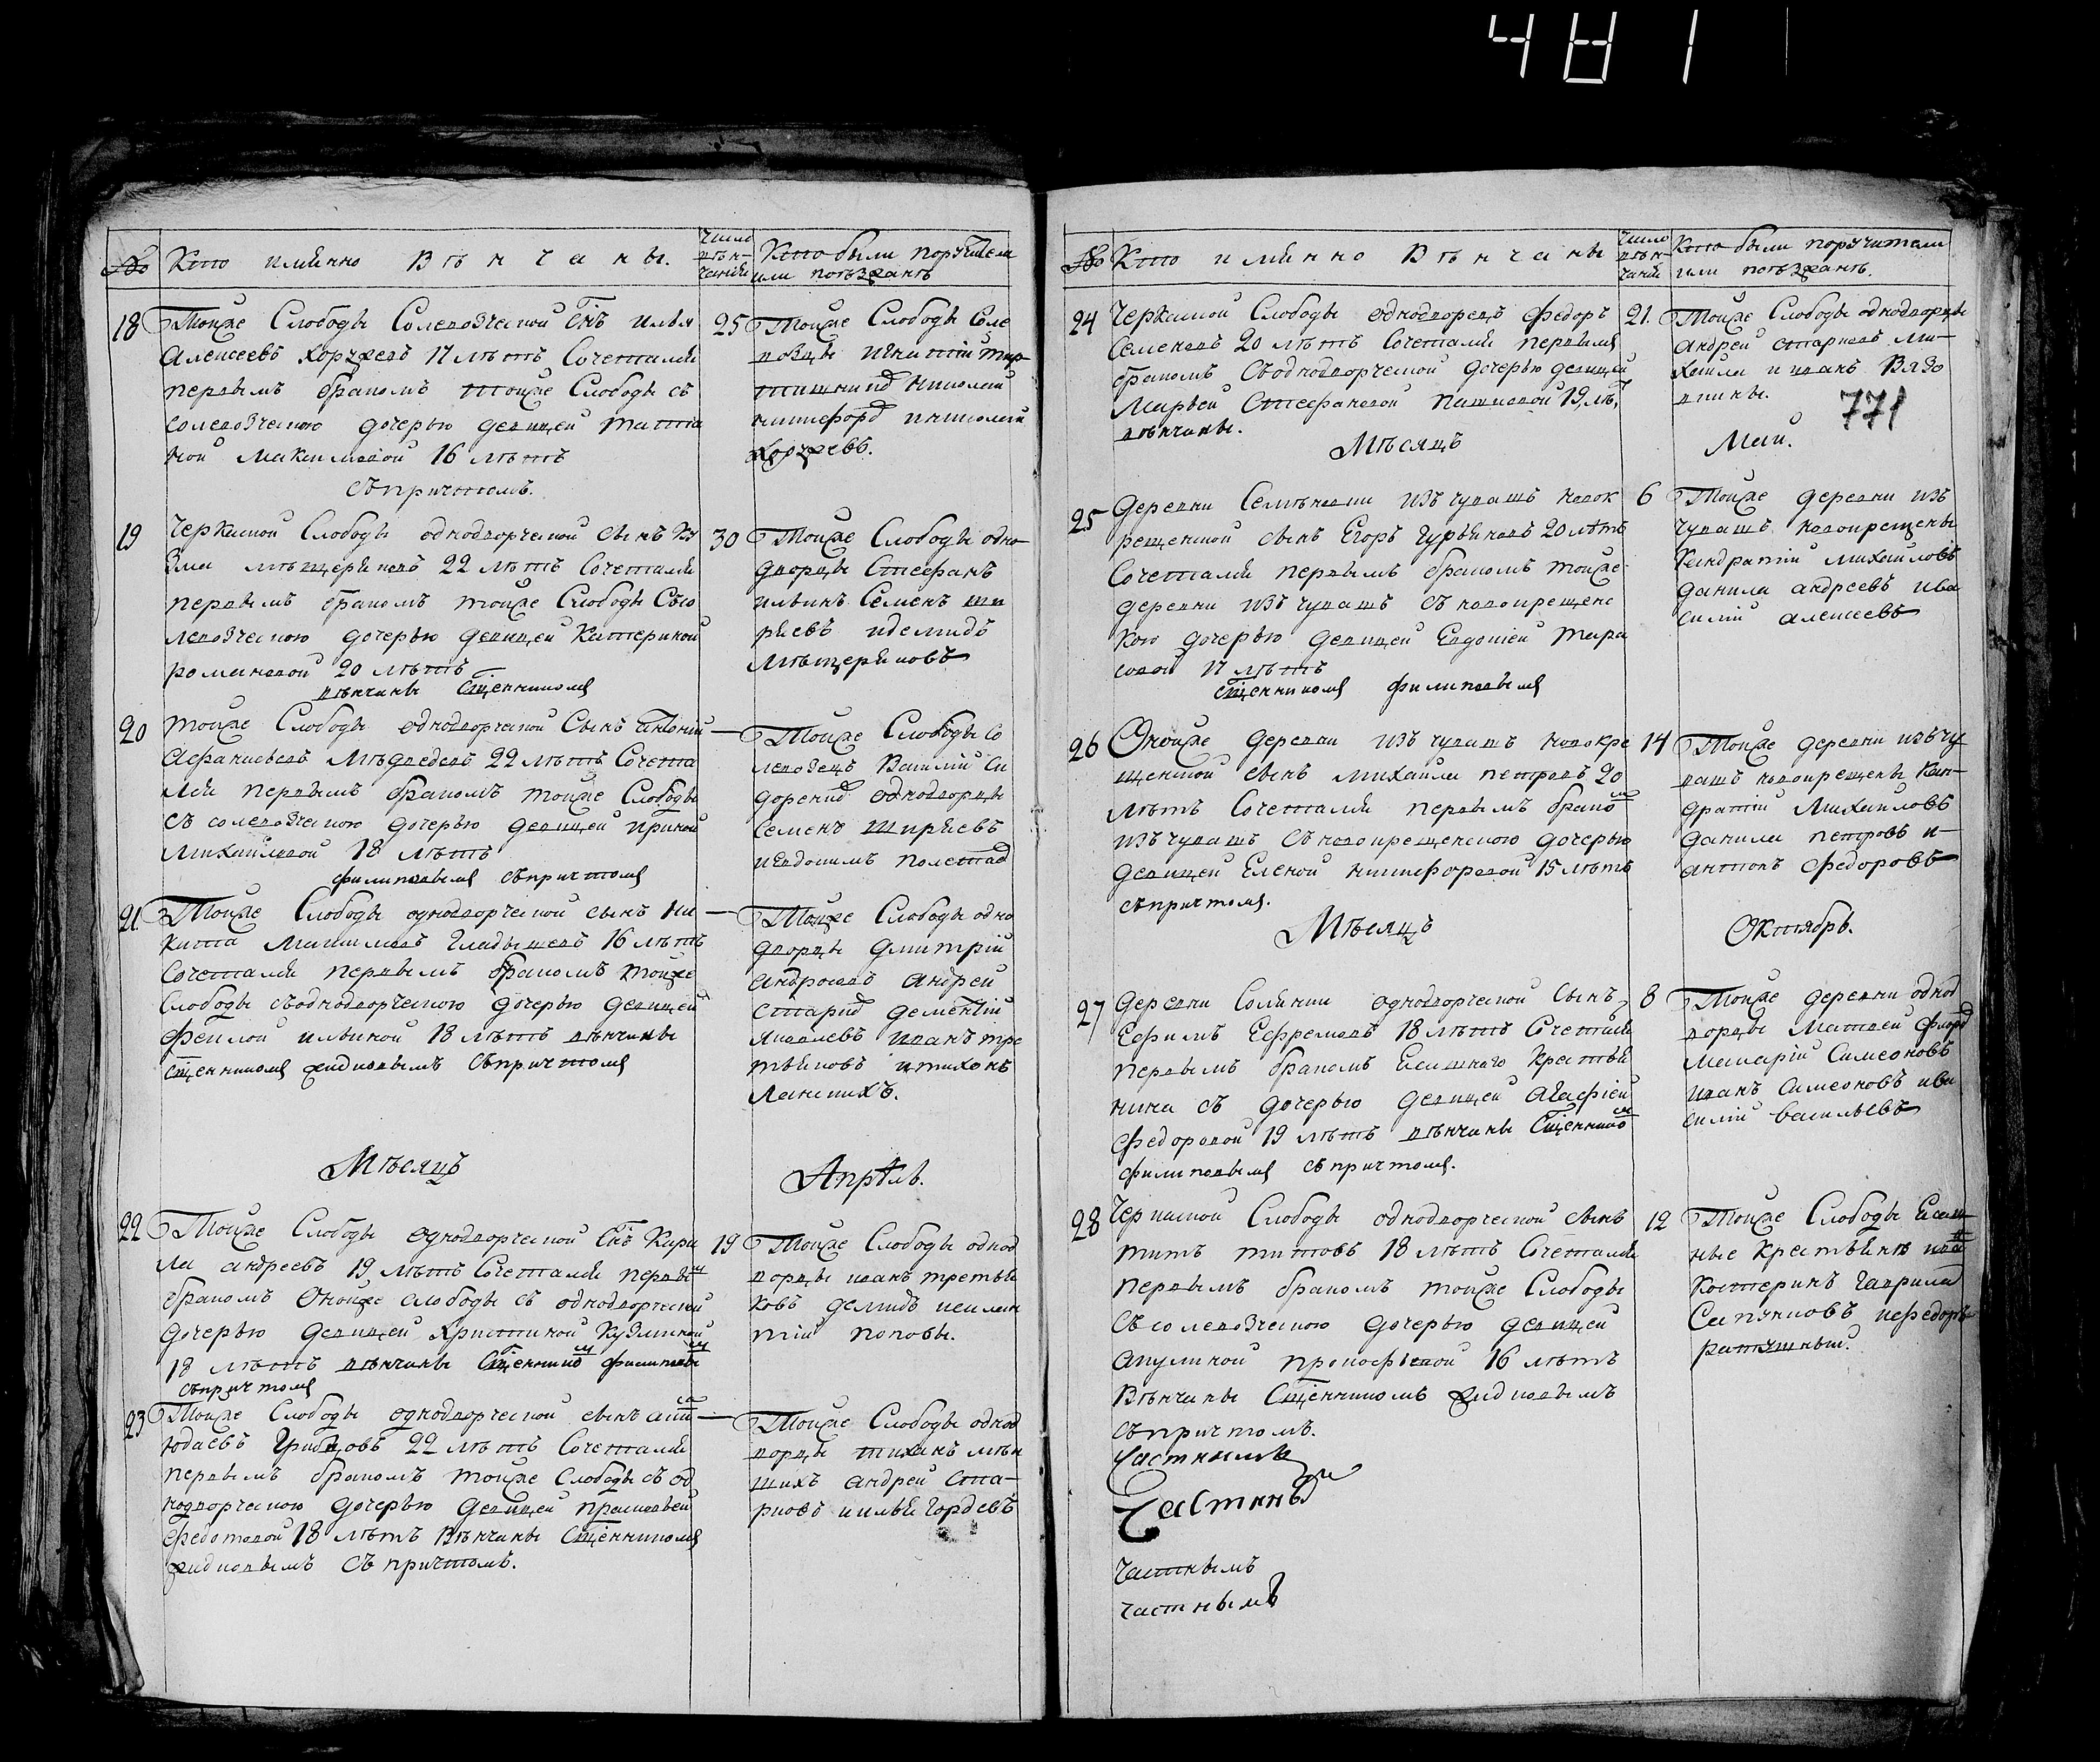 481
№ Кто имянно Венчаны. число венчания Кто были поручители
или поезжанѣ
18 Тоиже Слободы Солевозческой Снъ Илья
Алексеевъ Коржевъ 17 лѣтъ Сочетался
первымъ бракомъ тоиже Слободы съ
солевозческою дочерью девицей Татья
ной Максимовой 16 лѣтъ
съ причтомъ.
25 Тоиже Слободы Соле
возцы Игнатій
Николай
Никифоръ и Николай
Коржевъ.
19 Черкаской Слободы однодворческой сынъ Ку
зма Мѣщеряковъ 22 лѣтъ Сочетался
первымъ бракомъ тоиже Слободы Съсо
левозческою дочерью девицей Катериной
романовой 20 лѣтъ
вѣнчаны Сщенникомъ
30 Тоиже Слободы одно
дворцы Стефанъ
Ильинъ Семенъ Ши
ряевъ идемидъ
Мѣщеряковъ
20 тоиже Слободы однодворческой Сынъ Антоній
Афанасьевъ Мѣдведевъ 22 лѣтъ Сочета
лся первымъ бракомъ тоиже Слободы
съ солевозческою дочерью девицей ириной
Михайловой 18 лѣтъ
филиповымъ съпричтомъ
— Тоиже Слободы Со
левозецъ Василій Си
доренко однодворцы
Семенъ Ширяевъ
иевдокимъ
21. Тоиже Слободы однодворческой сынъ Ни
кита Максимовъ Гладышевъ 16 лѣтъ
Сочетался первымъ бракомъ тоиже
Слободы съоднодворческою дочерью девицей
Феклой ильиной 18 лѣтъ вѣнчаны
сщенникомъ жидковымъ съпричтомъ
— Тоиже Слободы одно
дворцы Дмитрій
Андросовъ Андрей
Старик дементій
Яковлевъ иванъ тре
тьяковъ итихонъ
Ланскихъ.
Мѣсяцъ Апрѣль.
22 Тоиже Слободы однодворческой Снъ Кири
ла андреевъ 19 лѣтъ Сочетался первы
бракомъ Оноиже слободы съ однодворческой
дочерью девицей христиной Кузминой
18 лѣтъ вѣнчаны Сщеннико филиповы
съпричтомъ
19 Тоиже Слободы однод
ворцы иванъ третья
ковъ демидъ
поповы.
23 Тоиже Слободы однодворческой сынъ
Юдаевъ Грибцовъ 22 лѣтъ Сочетался
первымъ бракомъ тоиже Слободы съ од
нодворческою дочерью девицей прасковьей
Федотовой 18 лѣтъ Вѣнчаны Сщенникомъ
жидковымъ Съ причтомъ.
— Тоиже Слободы однод
ворцы тиханъ
андрей Ста-
риковъ иилья Гордеевъ
№ Кто имянно Венчаны число венчания Кто были поручители
или поезжанѣ.
24 Черкаской Слободы однодворецъ федоръ
Семеновъ 20 лѣтъ Сочетался первымъ
бракомъ Съоднодворческой дочерью девицей
Марьей Стефановой 19 лѣ,
вѣнчаны.
21. Тоиже Слободы однодворцы
Андрей стариковъ Ми-
хайла и иванъ Вядо
вкины.
771
Мѣсяцъ Маи.
25 деревни Семѣновки изъ чувашъ новок
рещенской сынъ Егоръ Гурьяновъ 20 лѣтъ
Сочетался первымъ бракомъ тоиже
деревни изъ чувашъ съ новокрещенс
кою дочерью девицей Евдокіей тара
совой 17 лѣтъ
сщенникомъ филиповымъ
6 Тоиже деревни изъ
чувашъ новокрещены
Кандратій Михайловъ
данила андреевъ ива
силій алексеевъ
26 Оноиже деревни изъ чувашъ новокре
щенской сынъ Михайла петровъ 20
лѣтъ Сочетался первымъ брако
изъ чувашъ съновокрещенскою дочерью
девицей Еленой Никифоровой 15 лѣтъ
съпричтомъ.
14 Тоиже деревни изъчу
вашъ новокрещены Кон-
дратій Михаиловъ
данила петровъ и-
антонъ Федоровъ
Мѣсяцъ Октябрь.
27 деревни Солянки однодворческой Сынъ
Ефимъ Ефремовъ 18 лѣтъ Сочетался
первымъ бракомъ Ясашнаго Крестья
нина съ дочерью девицей Агафіей
федоровой 19 лѣтъ вѣнчаны Сщеннико
филиповымъ съ причтомъ.
8 Тоиже деревни однод
ворцы Матвей фроло
Макарій Симеоновъ
иванъ Симеоновъ ива
силій васильевъ
28 Черкаской Слободы однодворческой сынъ
титъ титовъ 18 лѣтъ Сочетался
первымъ бракомъ тоиже Слободы
съ солевозческою дочерью девицей
акулиной прокофьевой 16 лѣтъ
Вѣнчаны Сщенникомъ жидковымъ
съпричтомъ.
12 Тоиже Слободы Ясаш
ные Крестьяня ива
Костеринъ Гаврила
Сапуновъ ифедоръ
Частнымъ
Частнымъ
частнымъ